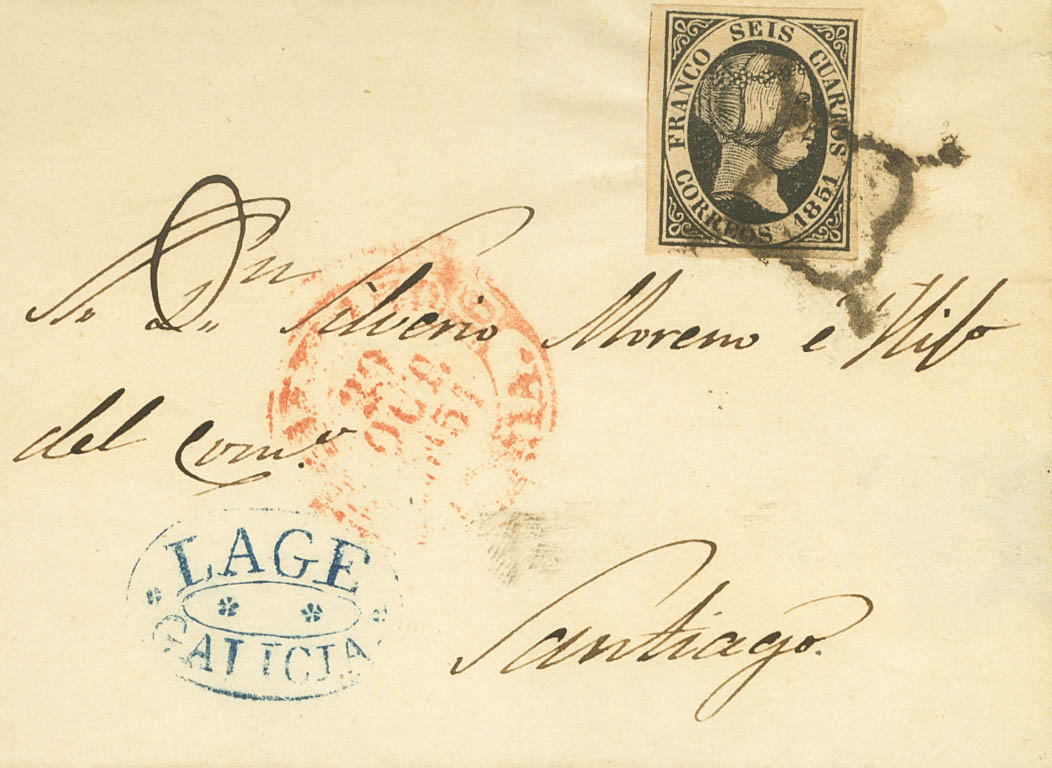 FRANCO SEIS CUARTOS
CORREOS 1851
Sr. Dn Silverio Moreno é Hijo
del Com.o
29
OCT.
1851
LAGE
GALICIA
Santiago.